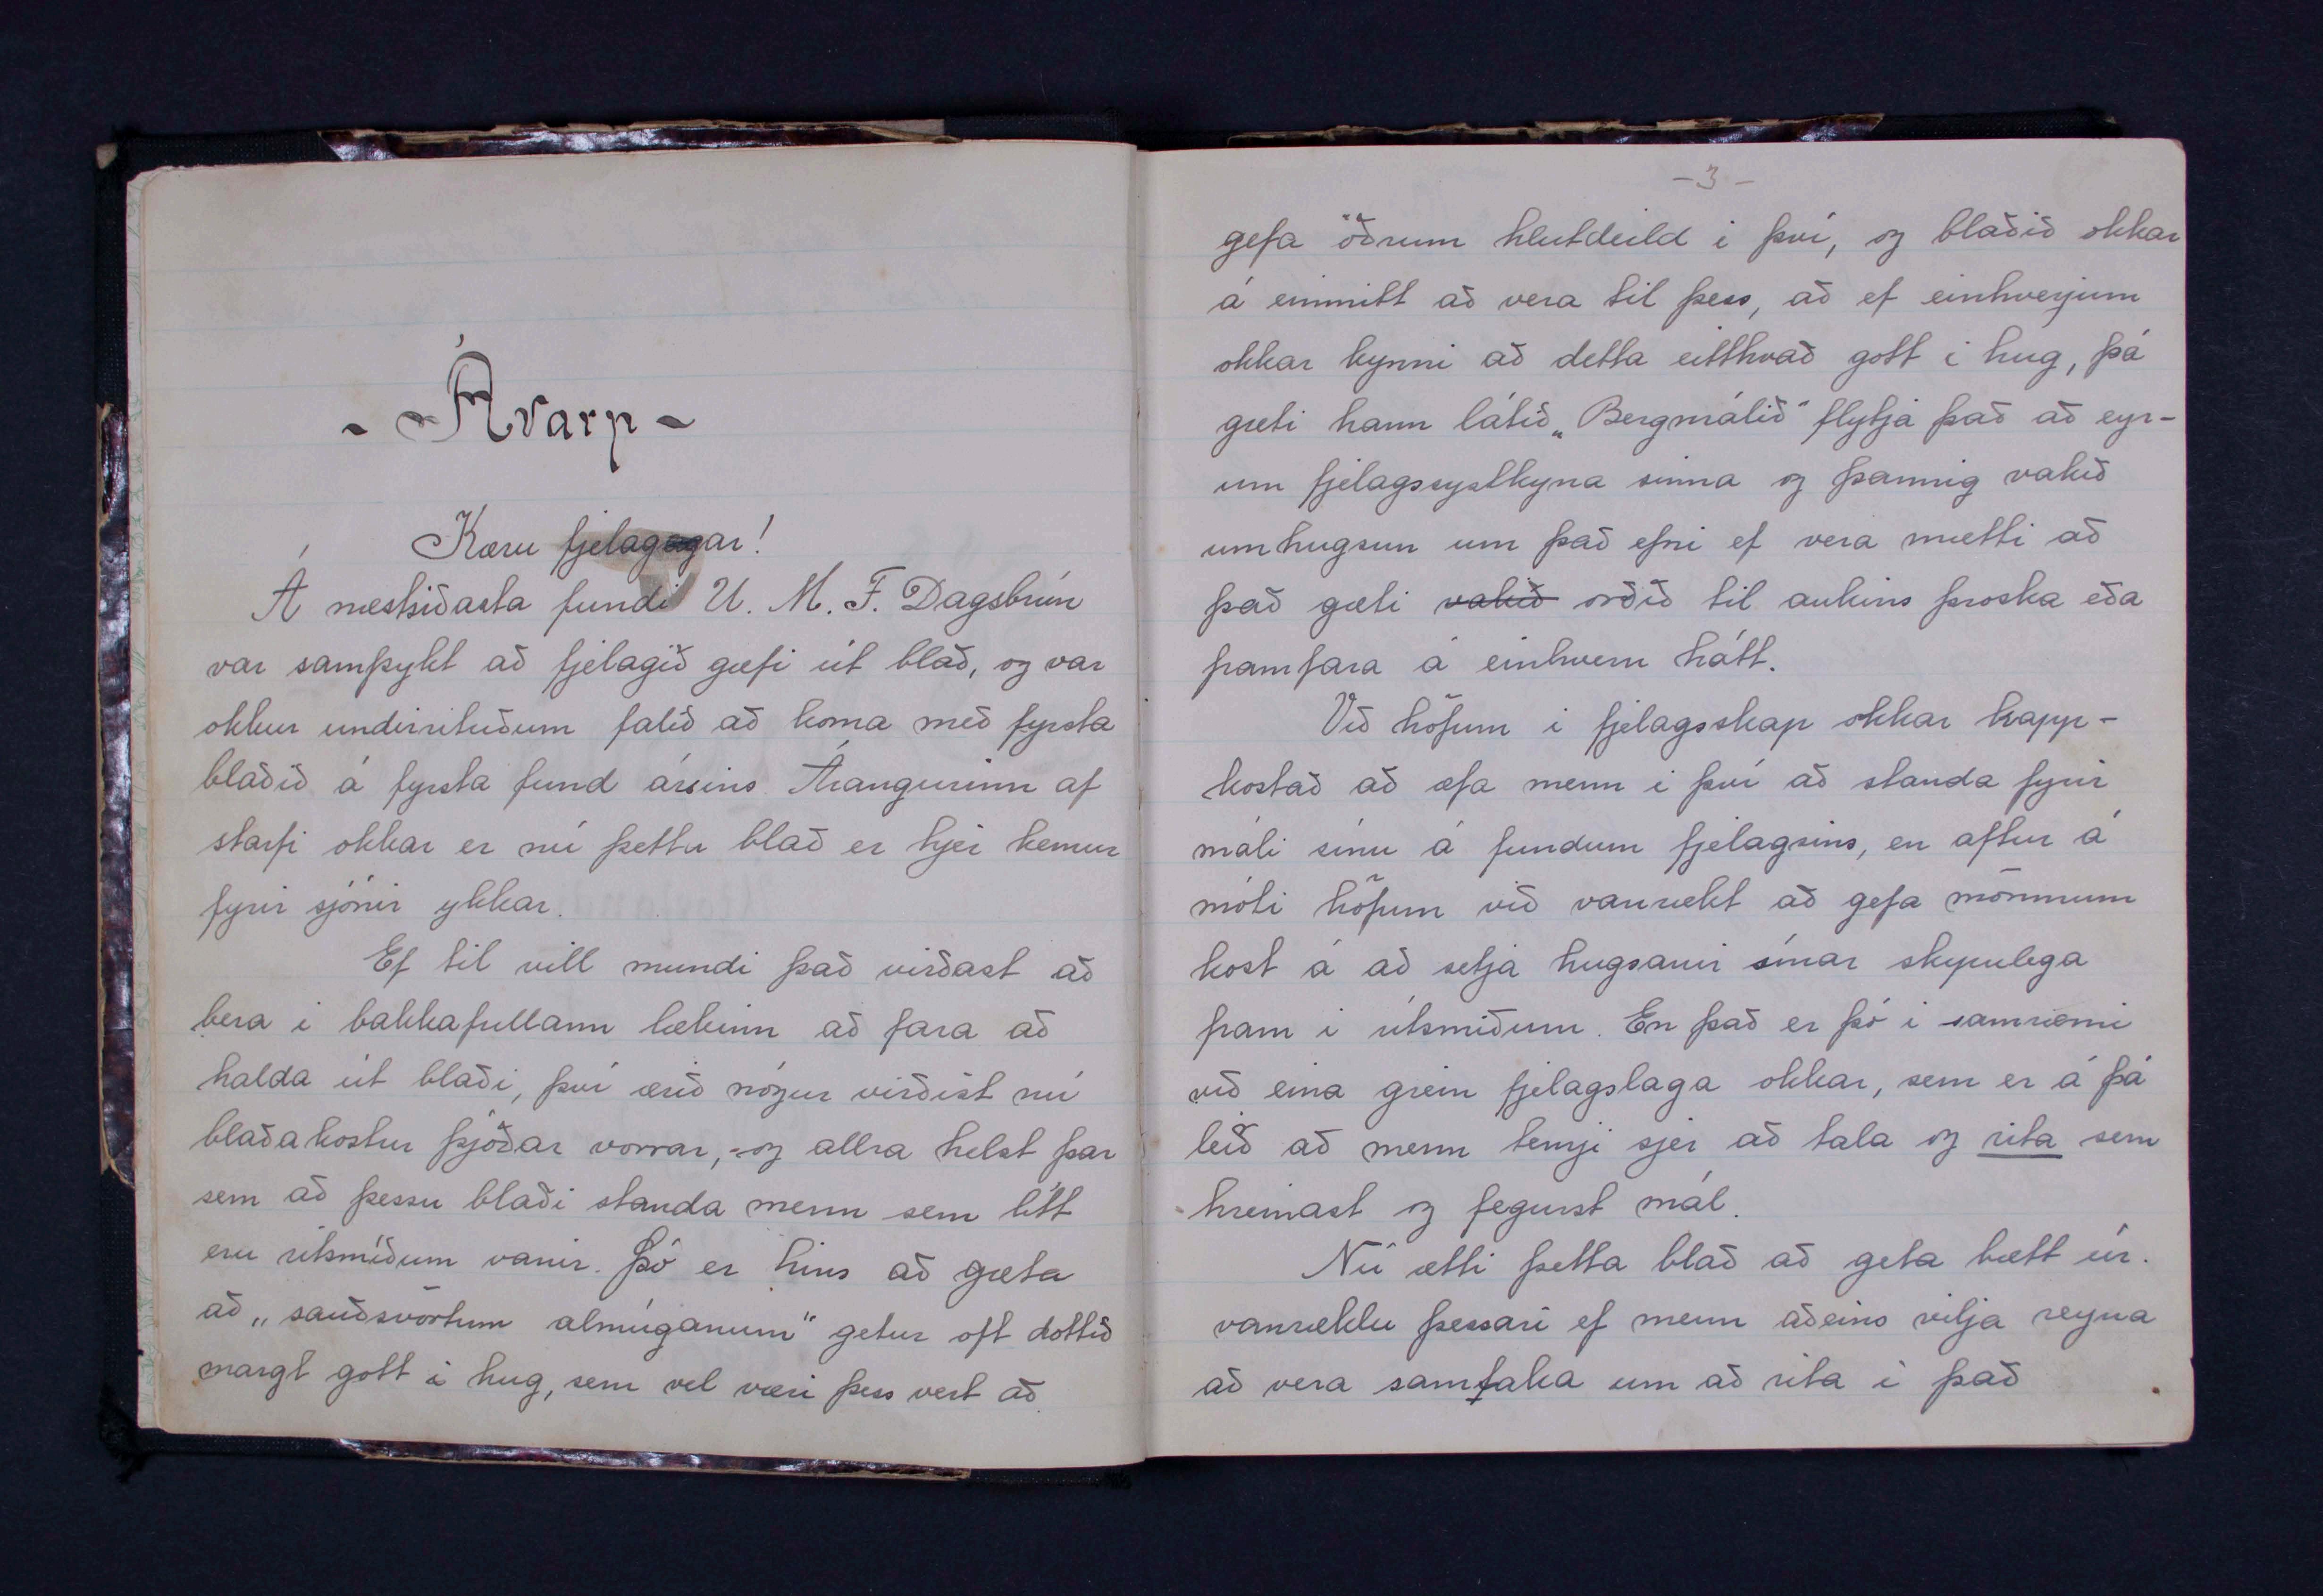 - Ávarp -
Kæru fjelagar!
Á næstsíðasta fundi U. M. F. Dagsbrún
var samþykt að fjelagið gæfi út blað, og var
okkur undirrituðum falið að koma með fyrsta
blaðið á fyrsta fund ársins. Árangurinn af
starfi okkar er nú þetta blað er hjer kemur
fyrir sjónir ykkar.
Ef til vill mundi það virðast að
bera í bakkafullann lækinn að fara að
halda út blaði, því ærið nógur virðist nú
blaðakostur þjóðar vorrar, og allra helst þar
sem að þessu blaði standa menn sem lítt
eru ritsmíðum vanir. Þó er hins að gæta
að „sauðsvörtum almúganum“ getur oft dottið
margt gott í hug, sem vel væri þess vert að
-3-
gefa öðrum hlutdeild i því, og blaðið okkar
á einmitt að vera til þess, að ef einhverjum
okkar kynni að detta eitthvað gott i hug, þá
gæti hann látið „Bergmálið“ flytja það að eyr-
um fjelagssystkyna sinna og þannig vakið
umhugsun um það efni ef vera mætti að
það gæti vakið orðið til aukins þroska eða
framfara á einhvern hátt.
Við höfum i fjelagsskap okkar kapp-
kostað að æfa menn i því að standa fyrir
máli sínu á fundum fjelagsins, en aftur á
móti höfum við vanrækt að gefa mönnum
kost á að setja hugsanir sínar skipulega
fram i ritsmíðum. En það er þó i samræmi
við eina grein fjelagslaga okkar, sem er á þá
leið að menn temji sjer að tala og rita sem
hreinast og fegurst mál.
Nú ætti þetta blað að geta bætt úr
vanræklu þessari ef menn aðeins vilja reyna
að vera samtaka um að rita i það